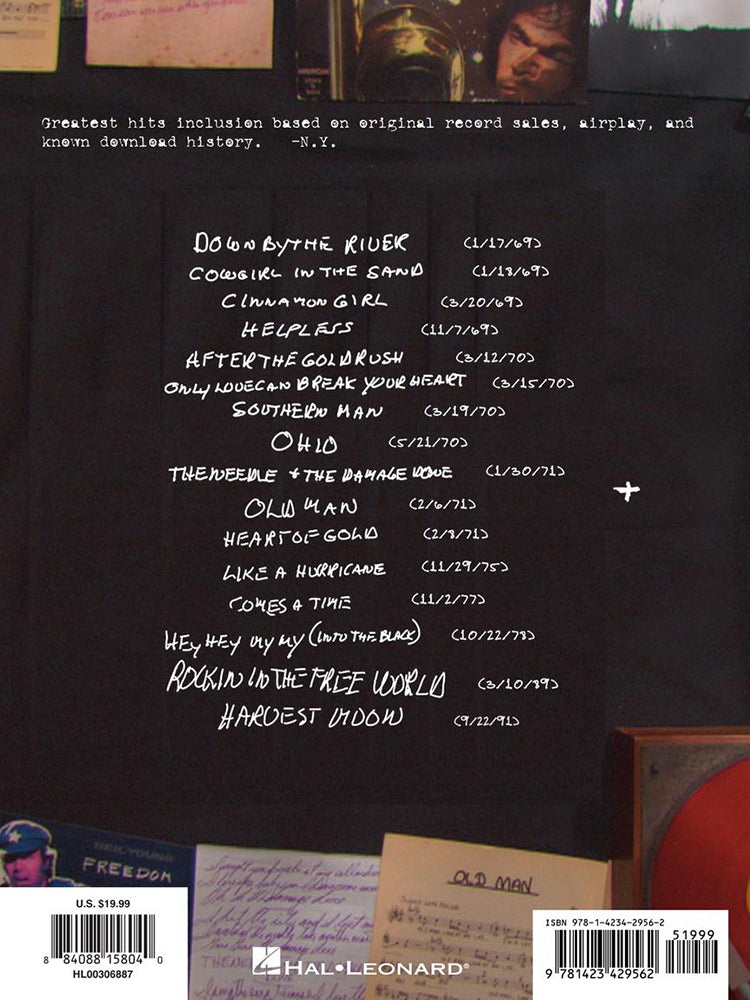 AMERICAN
STARS
Greatest hits inclusion based on original record sales, airplay, and
known download history. -N.Y.
DOWN BY THE RIVER (1/17/69)
COWGIRL IN THE SAND (1/18/69)
CINNAMON GIRL (3/20/69)
HELPLESS (11/7/69)
AFTER THE GOLD RUSH (3/12/70)
ONLY LOVE CAN BREAK YOUR HEART (3/15/70)
SOUTHERN MAN (3/19/70)
OHIO (5/21/70)
THE NEEDLE + THE DAMAGE DONE (1/30/71)
+
OLD MAN (2/6/71)
HEART OF GOLD (2/8/71)
LIKE A HURRICANE (11/29/75)
COMES A TIME (11/2/77)
HEY HEY MY MY (INTO THE BLACK) (10/22/78)
ROCKIN IN THE FREE WORLD (3/10/89)
HARVEST MOON (9/22/91)
NEIL YOUNG
FREEDOM
OLD MAN
U.S. $19.99
8 84088 15804 0
HL00306887
HAL•LEONARD®
ISBN 978-1-4234-2956-2
51999
9 781423 429562